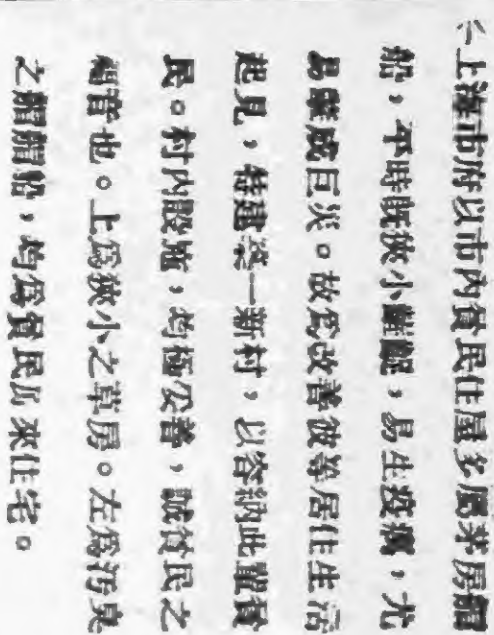 上海市府以市內貧民住屋多屬茅房糊
船，平時既狹小齷齪，易生疫癘，尤
易釀成巨災。故爲改善彼等居住生活
起見，特建築一新村，以容納此輩貧
民。村內設施，均極完善，誠貧民之
福音也。上爲狹小之草房。左爲污臭
之糊船，均爲貧民原來住宅。